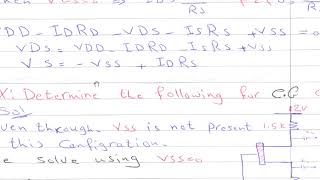 VDD - IDRD - VDS - ISRS + VSS = 0
VDS = VDD - IDRD - ISRS + VSS
VS = -VSS + IDRD
X: Determine the following for C.G
Sol
through. VSS is not present
this Configration.
solve using VSS=0
12V
1.5K